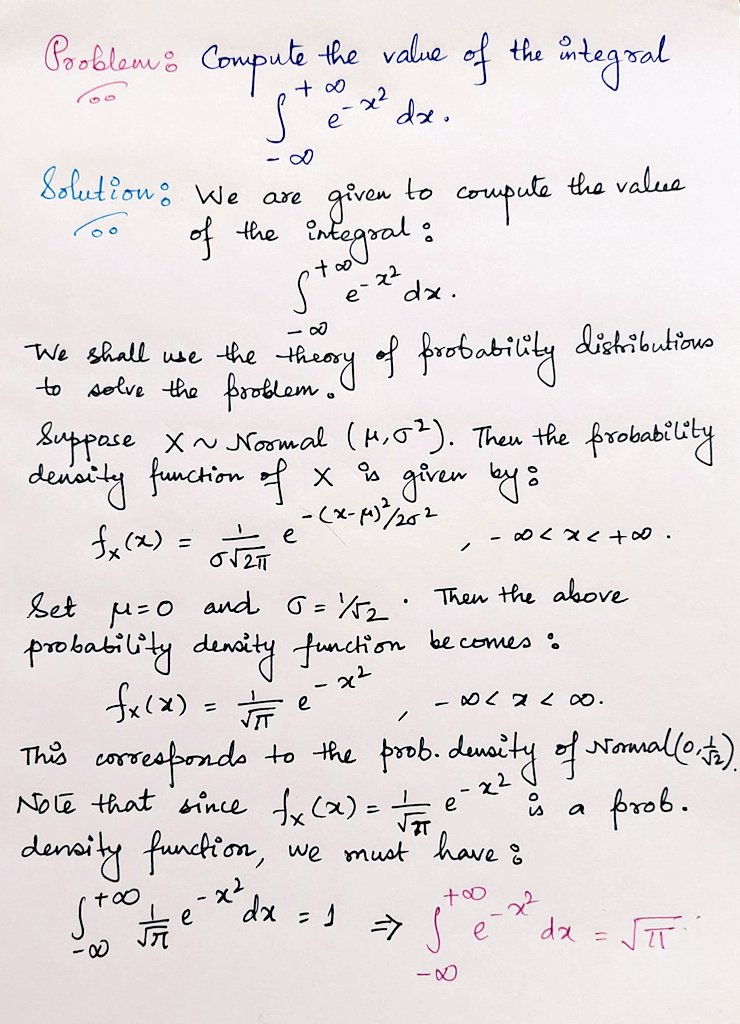 Problem: Compute the value of the integral
∫_{-∞}^{+∞} e^{-x²} dx.
Solution: We are given to compute the value
of the integral:
∫_{-∞}^{+∞} e^{-x²} dx.
We shall use the theory of probability distributions
to solve the problem.
Suppose X ~ Normal (μ, σ²). Then the probability
density function of X is given by:
f_X(x) = 1/(σ√2π) e^{-(x-μ)²/2σ²}, -∞ < x < +∞.
Set μ=0 and σ = 1/√2. Then the above
probability density function becomes:
f_X(x) = 1/√π e^{-x²}, -∞ < x < ∞.
This corresponds to the prob. density of Normal(0, 1/√2).
Note that since f_X(x) = 1/√π e^{-x²} is a prob.
density function, we must have:
∫_{-∞}^{+∞} 1/√π e^{-x²} dx = 1 ⇒ ∫_{-∞}^{+∞} e^{-x²} dx = √π